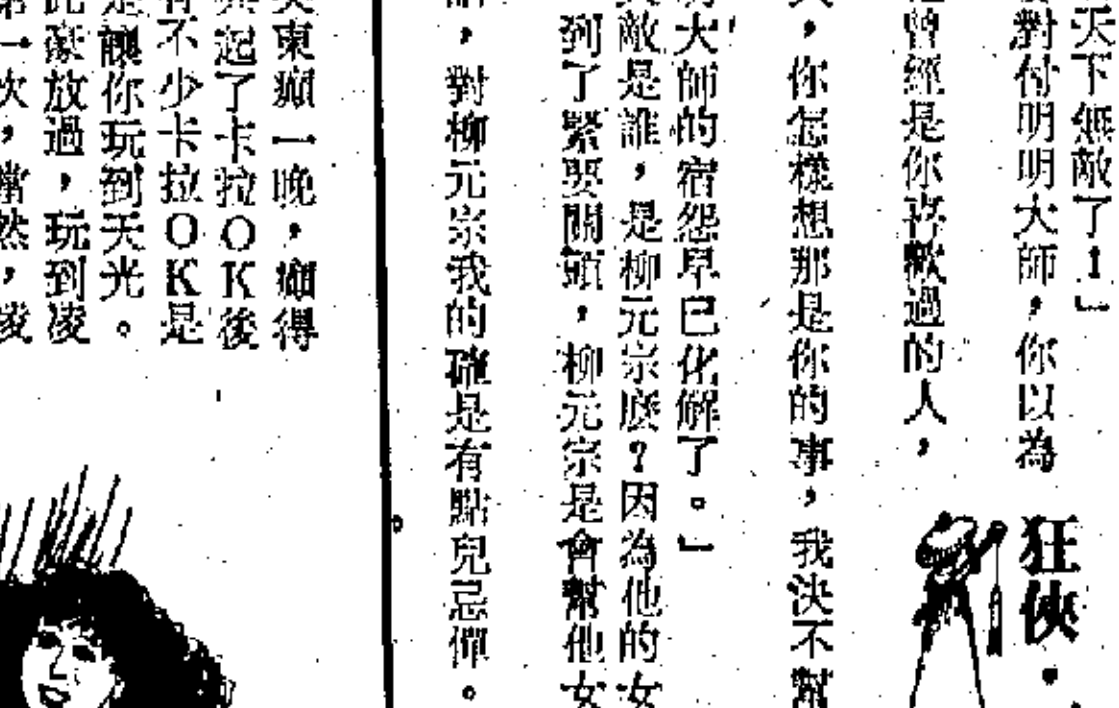 天下無敵了！」
對付明明大師，你以為
曾經是你喜歡過的人，
狂俠·
，你怎樣想那是你的事，我決不幫
大師的宿怨早已化解了。」
敵是誰，是柳元宗麽？因為他的女
到了緊要關頭，柳元宗是會幫他女
，對柳元宗我的確是有點兒忌憚。
東癲一晚，癲得
起了卡拉OK後
不少卡拉OK是
讓你玩到天光。
豪放過，玩到凌
一次，當然，凌